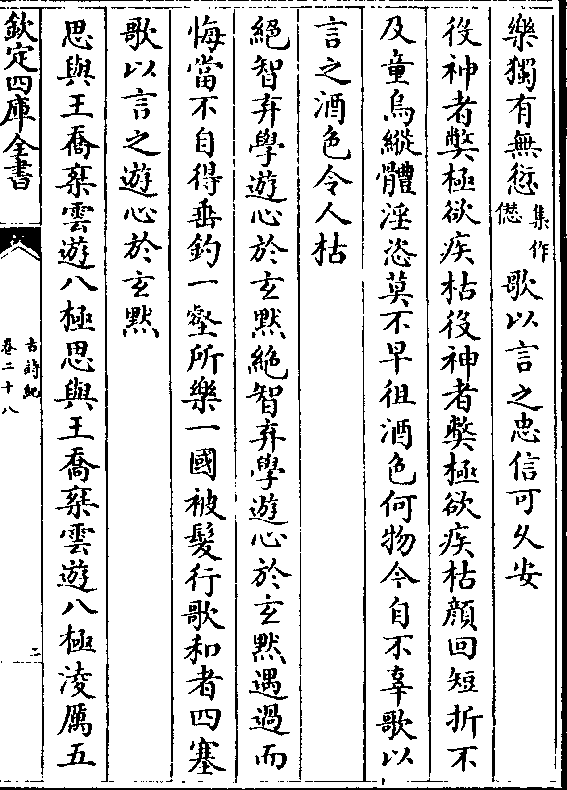 樂獨有無愆集作𠎝歌以言之忠信可久安
役神者弊極欲疾枯役神者弊極欲疾枯顔回短折不
及童烏縱體淫恣莫不早徂酒色何物令自不辜歌以
言之酒色令人枯
絕智弃學遊心於玄默絕智弃學遊心於玄默遇過而
悔當不自得垂釣一壑所樂一國被髮行歌和者四塞
歌以言之遊心於玄默
思與王喬椉雲遊八極思與王喬椉雲遊八極淩厲五
欽定四庫全書
古詩紀
卷二十八
二